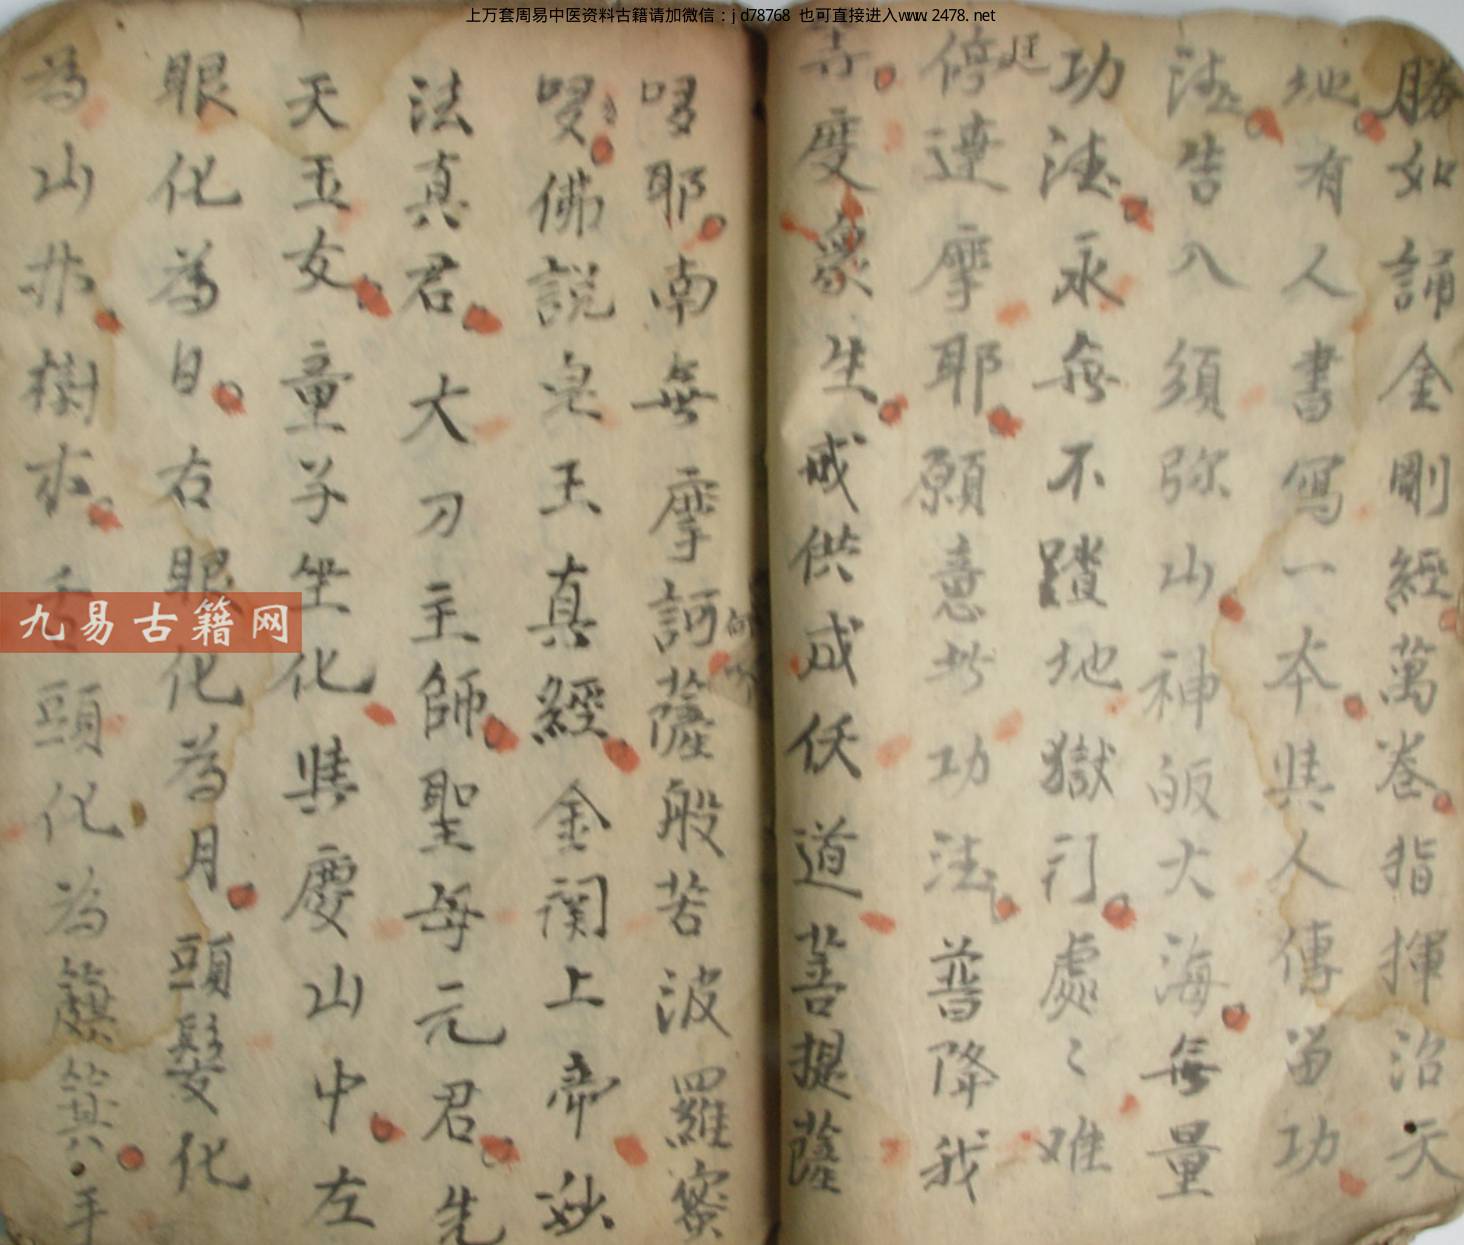 上万套周易中医资料古籍请加微信：jd78768 也可直接进入www.2478.net
勝如誦金剛經萬卷指揮治天
地有人書寫一本與人傳留功
法告八須弥山神皈大海無量
功法永無不踏地獄行處〻难
停連摩耶願意功法普降我
等度衆生成道菩提薩
哆耶南無摩訶薩般若波羅蜜
哆佛說皇王真經金闕上帝妙
法真君大刀主師聖母元君先
天玉女童子坐化與慶山中左
眼化為日右眼化為月頭髮化
為山樹木頭化為手
九易古籍网